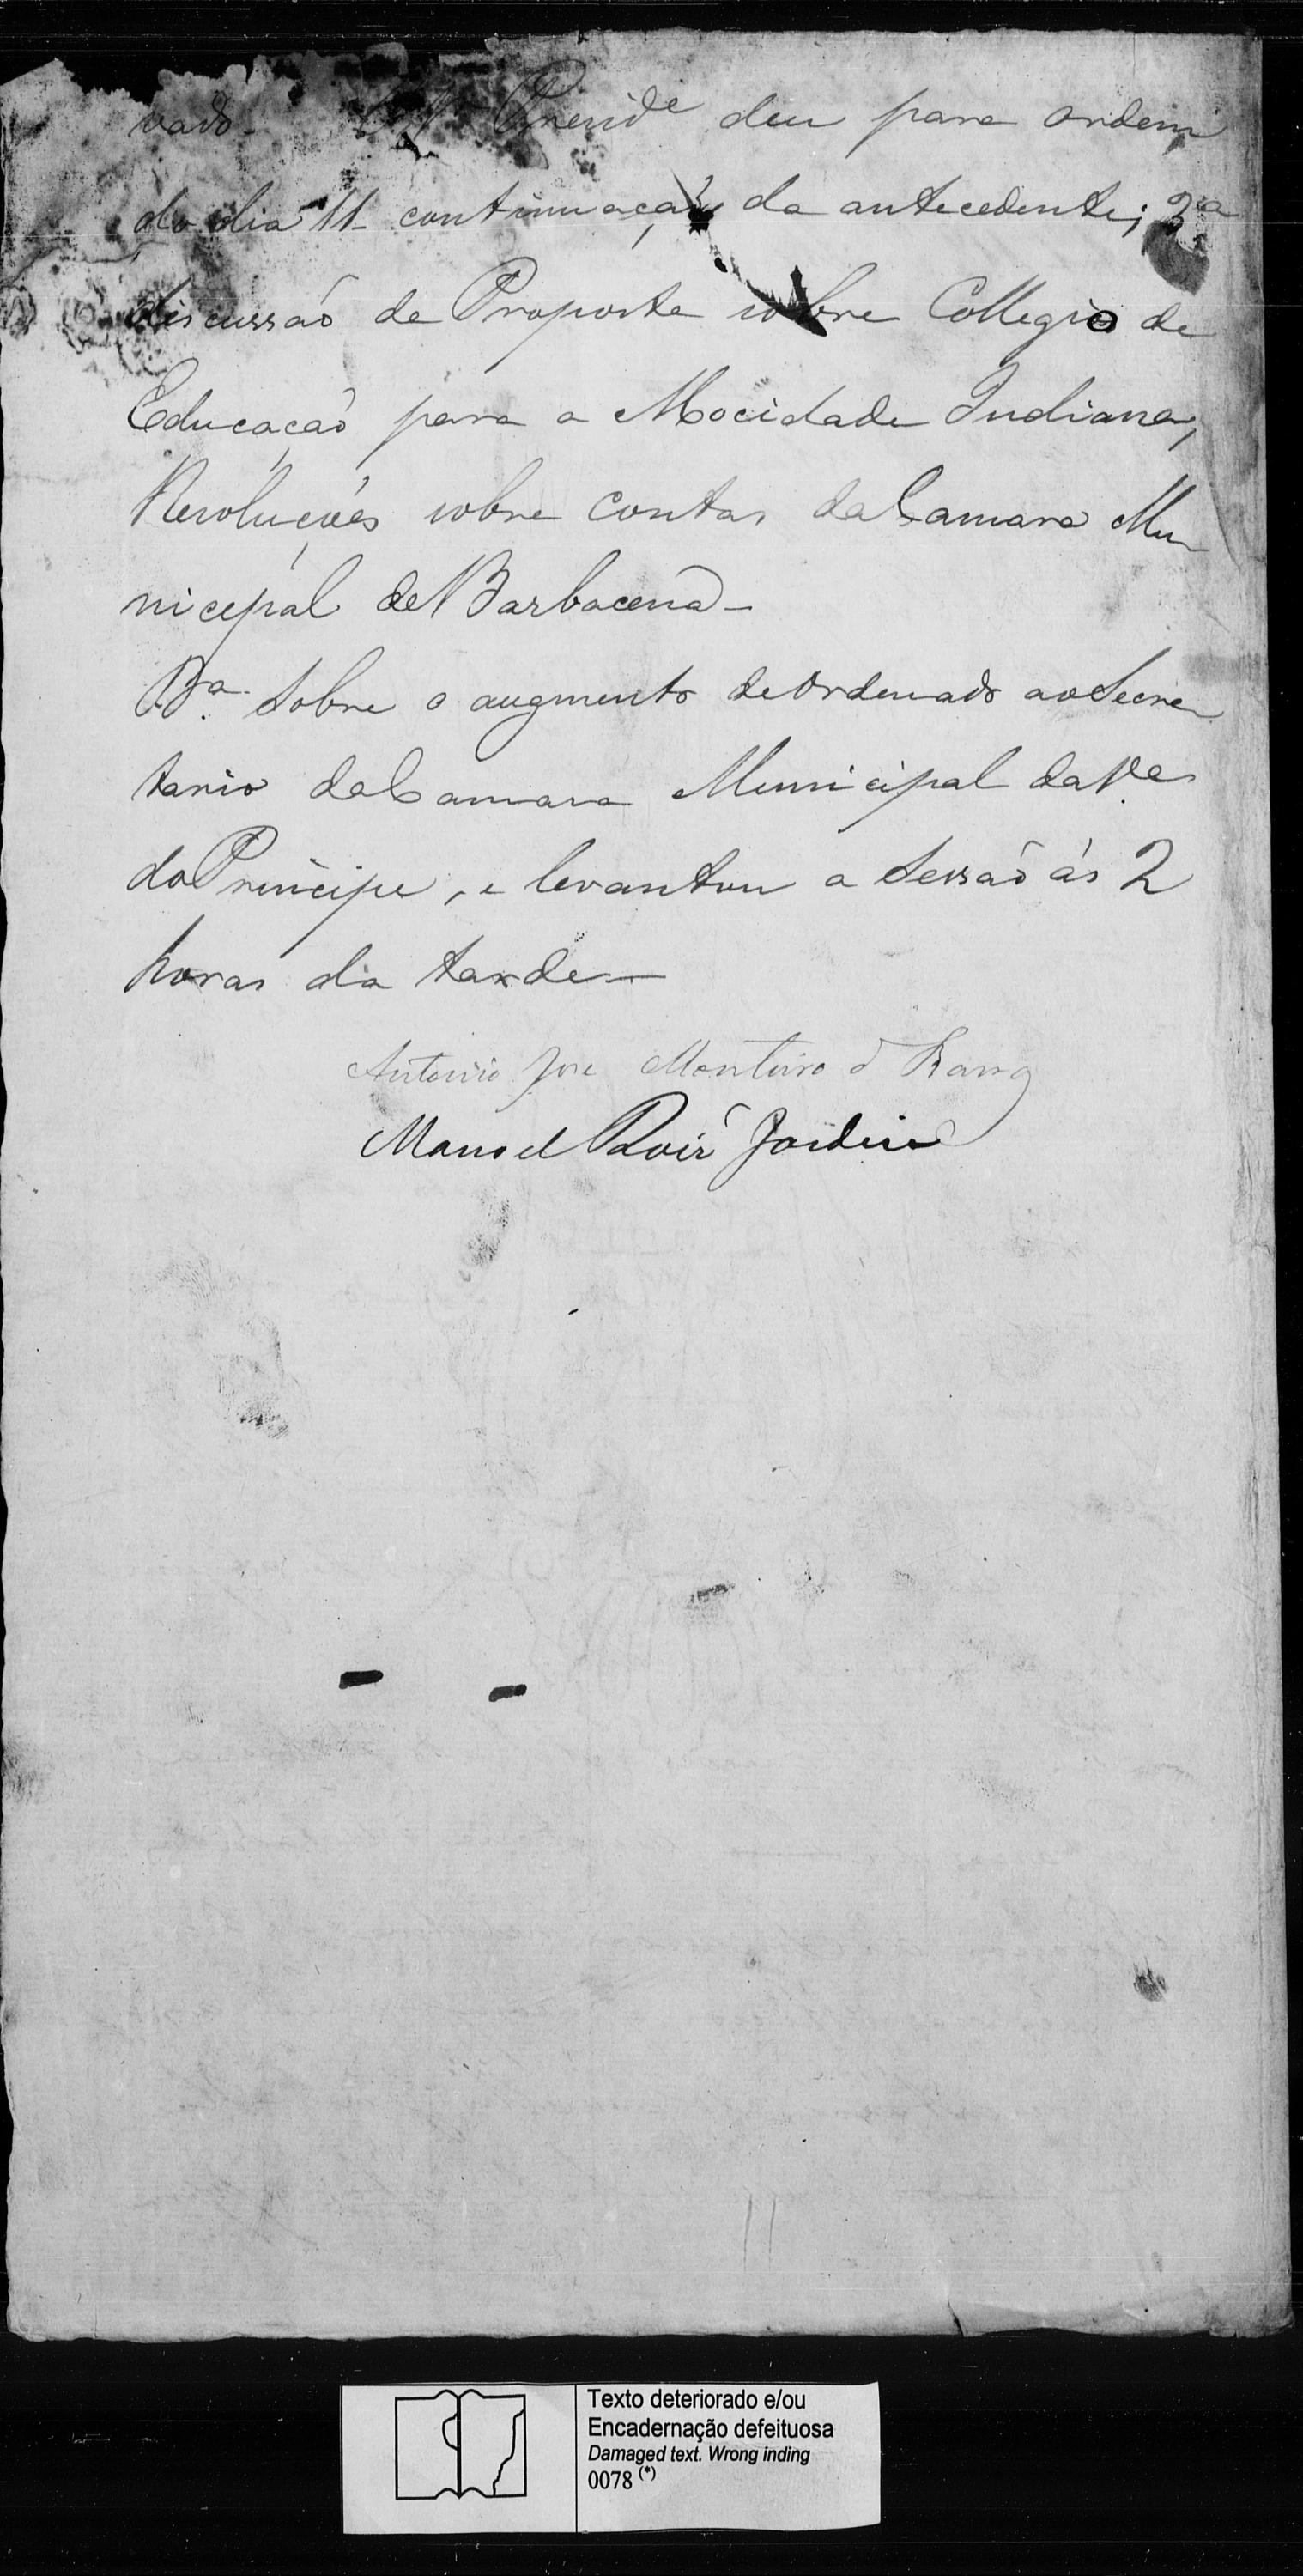 vado. O Sr. Preside deu para ordem
do dia 11 continuação da antecedente; 3a
discussaõ de Proposta sobre Collegio de
Educaçaõ para a Mocidade Indiana,
Resoluçoẽs sobre contas da Camara Mu
nicipal de Barbacena_
Da. sobre o augmento de Ordenado ao Secre
tario da Camara Municipal da Va
do Principe, e levantou a Sessaõ ás 2
horas da tarde_
Antonio Jose Monteiro d Barros
Manoel Jardim
Texto deteriorado e/ou
Encadernação defeituosa
Damaged text. Wrong inding
0078 (*)